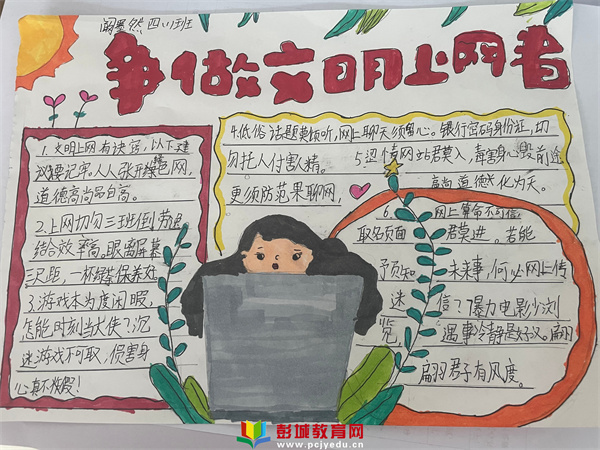 四(1)班
争做文明上网者
1.文明上网有诀窍,以下建
议要记牢。人人张开绿色网,
道德高尚品自高。
2.上网切勿三班倒,劳逸
结合效率高。眼离屏幕
三尺距,一杯绿茶保养好
3.游戏本为度闲暇,
怎能时刻当大侠?沉
迷游戏不可取,损害身
心真不假!
4.低俗话题莫倾听,网上聊天须留心。银行密码身份证,切
勿托人付害人精。
更须防范果聊网,
5.迅情网站君莫入,毒害身心毁前途
高尚道德化为天。
6.网上算命不可信
取名页面君莫进。若能
予页知未来事,何必网上传
迷信?暴力电影少浏
览,遇事冷静是好汉。翩
翩君子有风度。
彭城教育网
www.pcjyedu.cn